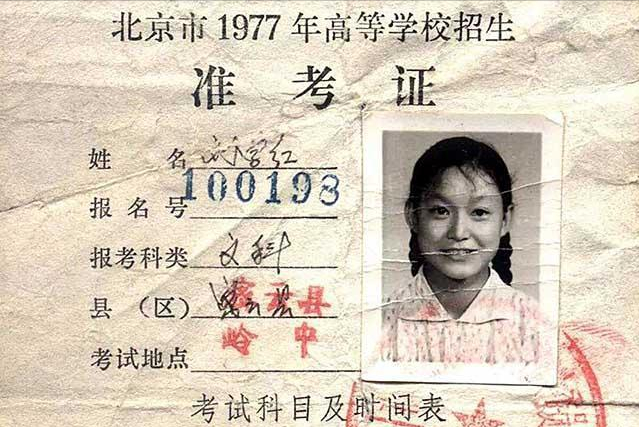 北京市1977年高等学校招生
准考证
姓名 刘学红
报名号 100198
报考科类 文科
县（区） 密云县
密云县
考试地点 岭中
考试科目及时间表